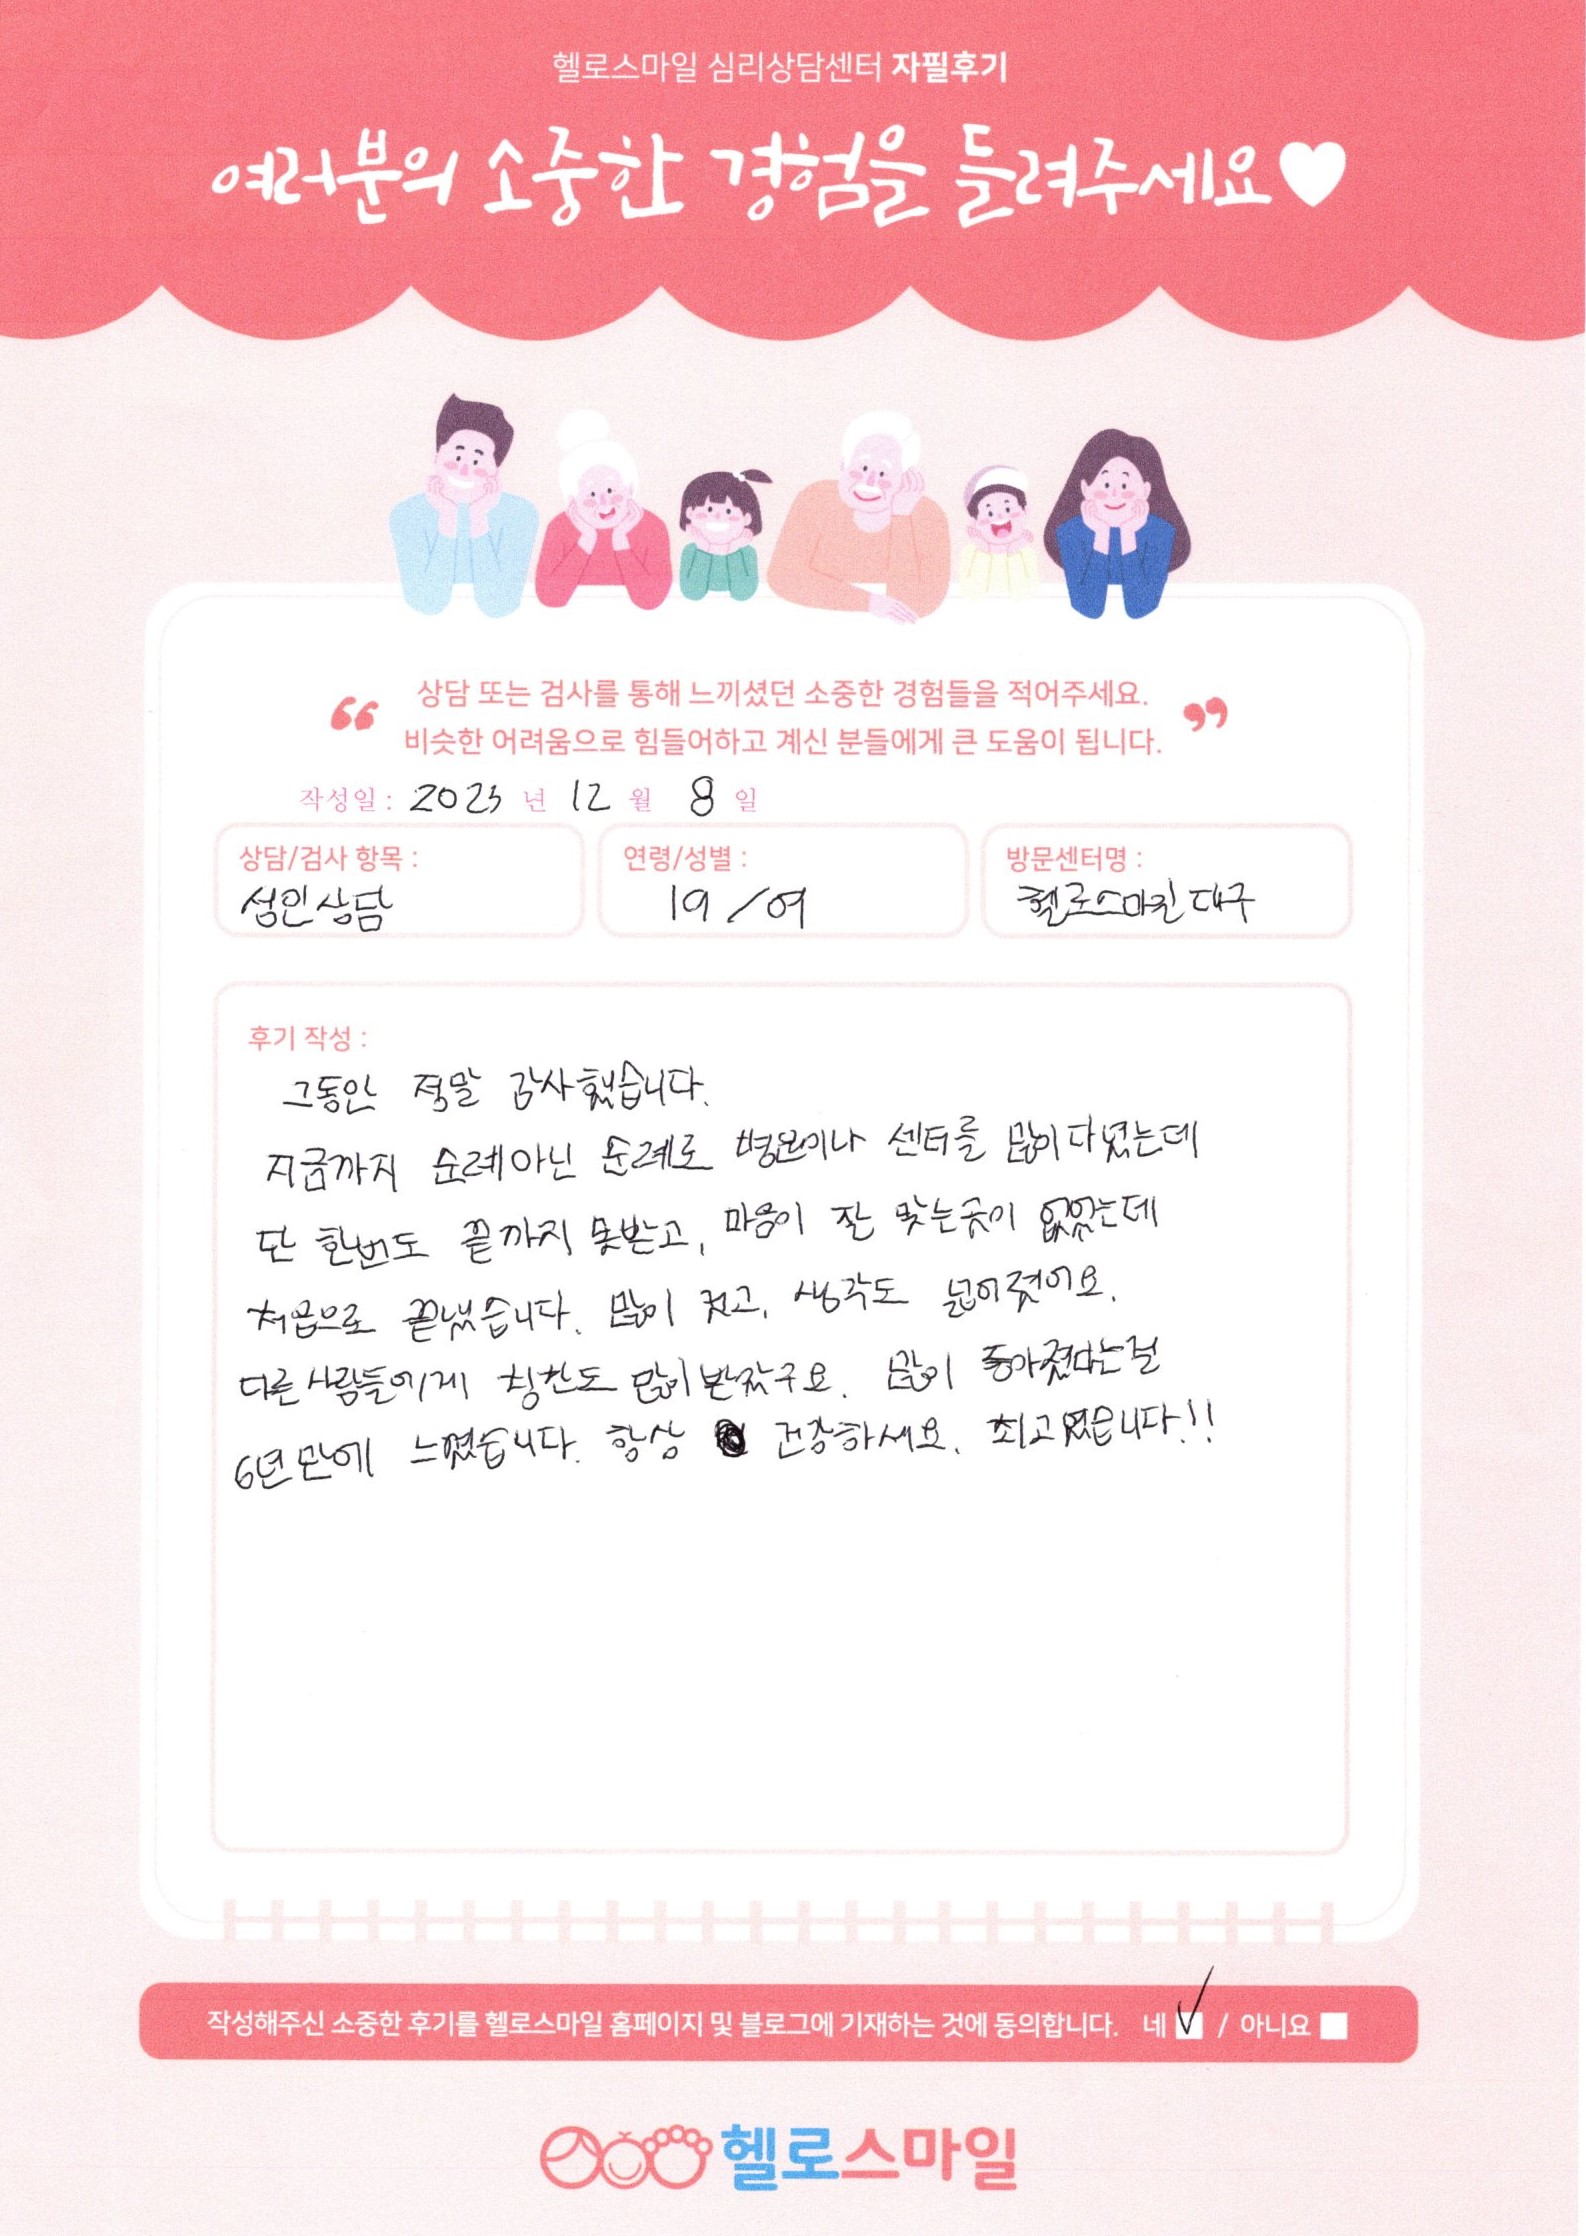 헬로스마일 심리상담센터 자필후기
여러분의 소중한 경험을 들려주세요♥
“ 상담 또는 검사를 통해 느끼셨던 소중한 경험들을 적어주세요. ”
비슷한 어려움으로 힘들어하고 계신 분들에게 큰 도움이 됩니다.
작성일 : 2023 년 12 월 8 일
상담/검사 항목 :
성인상담
연령/성별 :
19 / 여
방문센터명 :
헬로스마일 대구
후기 작성 :
그동안 정말 감사했습니다.
지금까지 순례아닌 순례로 병원이나 센터를 많이 다녔는데
단 한번도 끝까지 못받고, 마음이 잘 맞는곳이 없었는데
처음으로 끝냈습니다. 많이 컸고, 생각도 넓어졌어요.
다른사람들에게 칭찬도 많이받았구요. 많이 좋아졌다는걸
6년만에 느꼈습니다. 항상 건강하세요. 최고였습니다!!
작성해주신 소중한 후기를 헬로스마일 홈페이지 및 블로그에 기재하는 것에 동의합니다. 네 ✓ / 아니요
헬로스마일